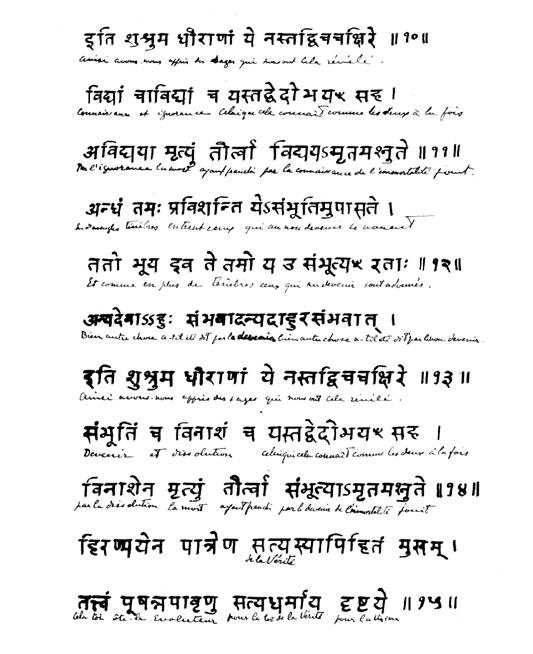 इति शुश्रुम धीराणां ये नस्तद्विचचक्षिरे ॥१०॥
Ainsi avons-nous appris des sages qui nous ont cela révélé.
विद्यां चाविद्यां च यस्तद्वेदोभयꣳ सह ।
Connaissance et ignorance celui qui cela connaît comme les deux à la fois
अविद्यया मृत्युं तीर्त्वा विद्ययाऽमृतमश्नुते ॥११॥
Par l'ignorance la mort ayant franchi par la connaissance de l'immortalité jouit.
अन्धं तमः प्रविशन्ति येऽसंभूतिमुपासते ।
ténèbres entrent ceux qui au non devenir se vouent
ततो भूय इव ते तमो य उ संभूत्यꣳ रताः ॥१२॥
Et comme en plus de ténèbres ceux qui au devenir sont adonnés.
अन्यदेवाऽऽहुः संभवादन्यदाहुरसंभवात् ।
Bien autre chose a-t-il été dit par le devenir bien autre chose a-t-il été dit par le non devenir.
इति शुश्रुम धीराणां ये नस्तद्विचचक्षिरे ॥१३॥
Ainsi avons-nous appris des sages qui nous ont cela révélé.
संभूतिं च विनाशं च यस्तद्वेदोभयꣳ सह ।
Devenir et dissolution celui qui cela connaît comme les deux à la fois
विनाशेन मृत्युं तीर्त्वा संभूत्याऽमृतमश्नुते ॥१४॥
par la dissolution la mort ayant franchi par le devenir de l'immortalité jouit
हिरण्मयेन पात्रेण सत्यस्यापिहितं मुखम् ।
de la Vérité
तत्त्वं पूषन्नपावृणु सत्यधर्माय दृष्टये ॥१५॥
Cela toi ôte-le Evoluteur pour la loi de la Vérité pour la vision